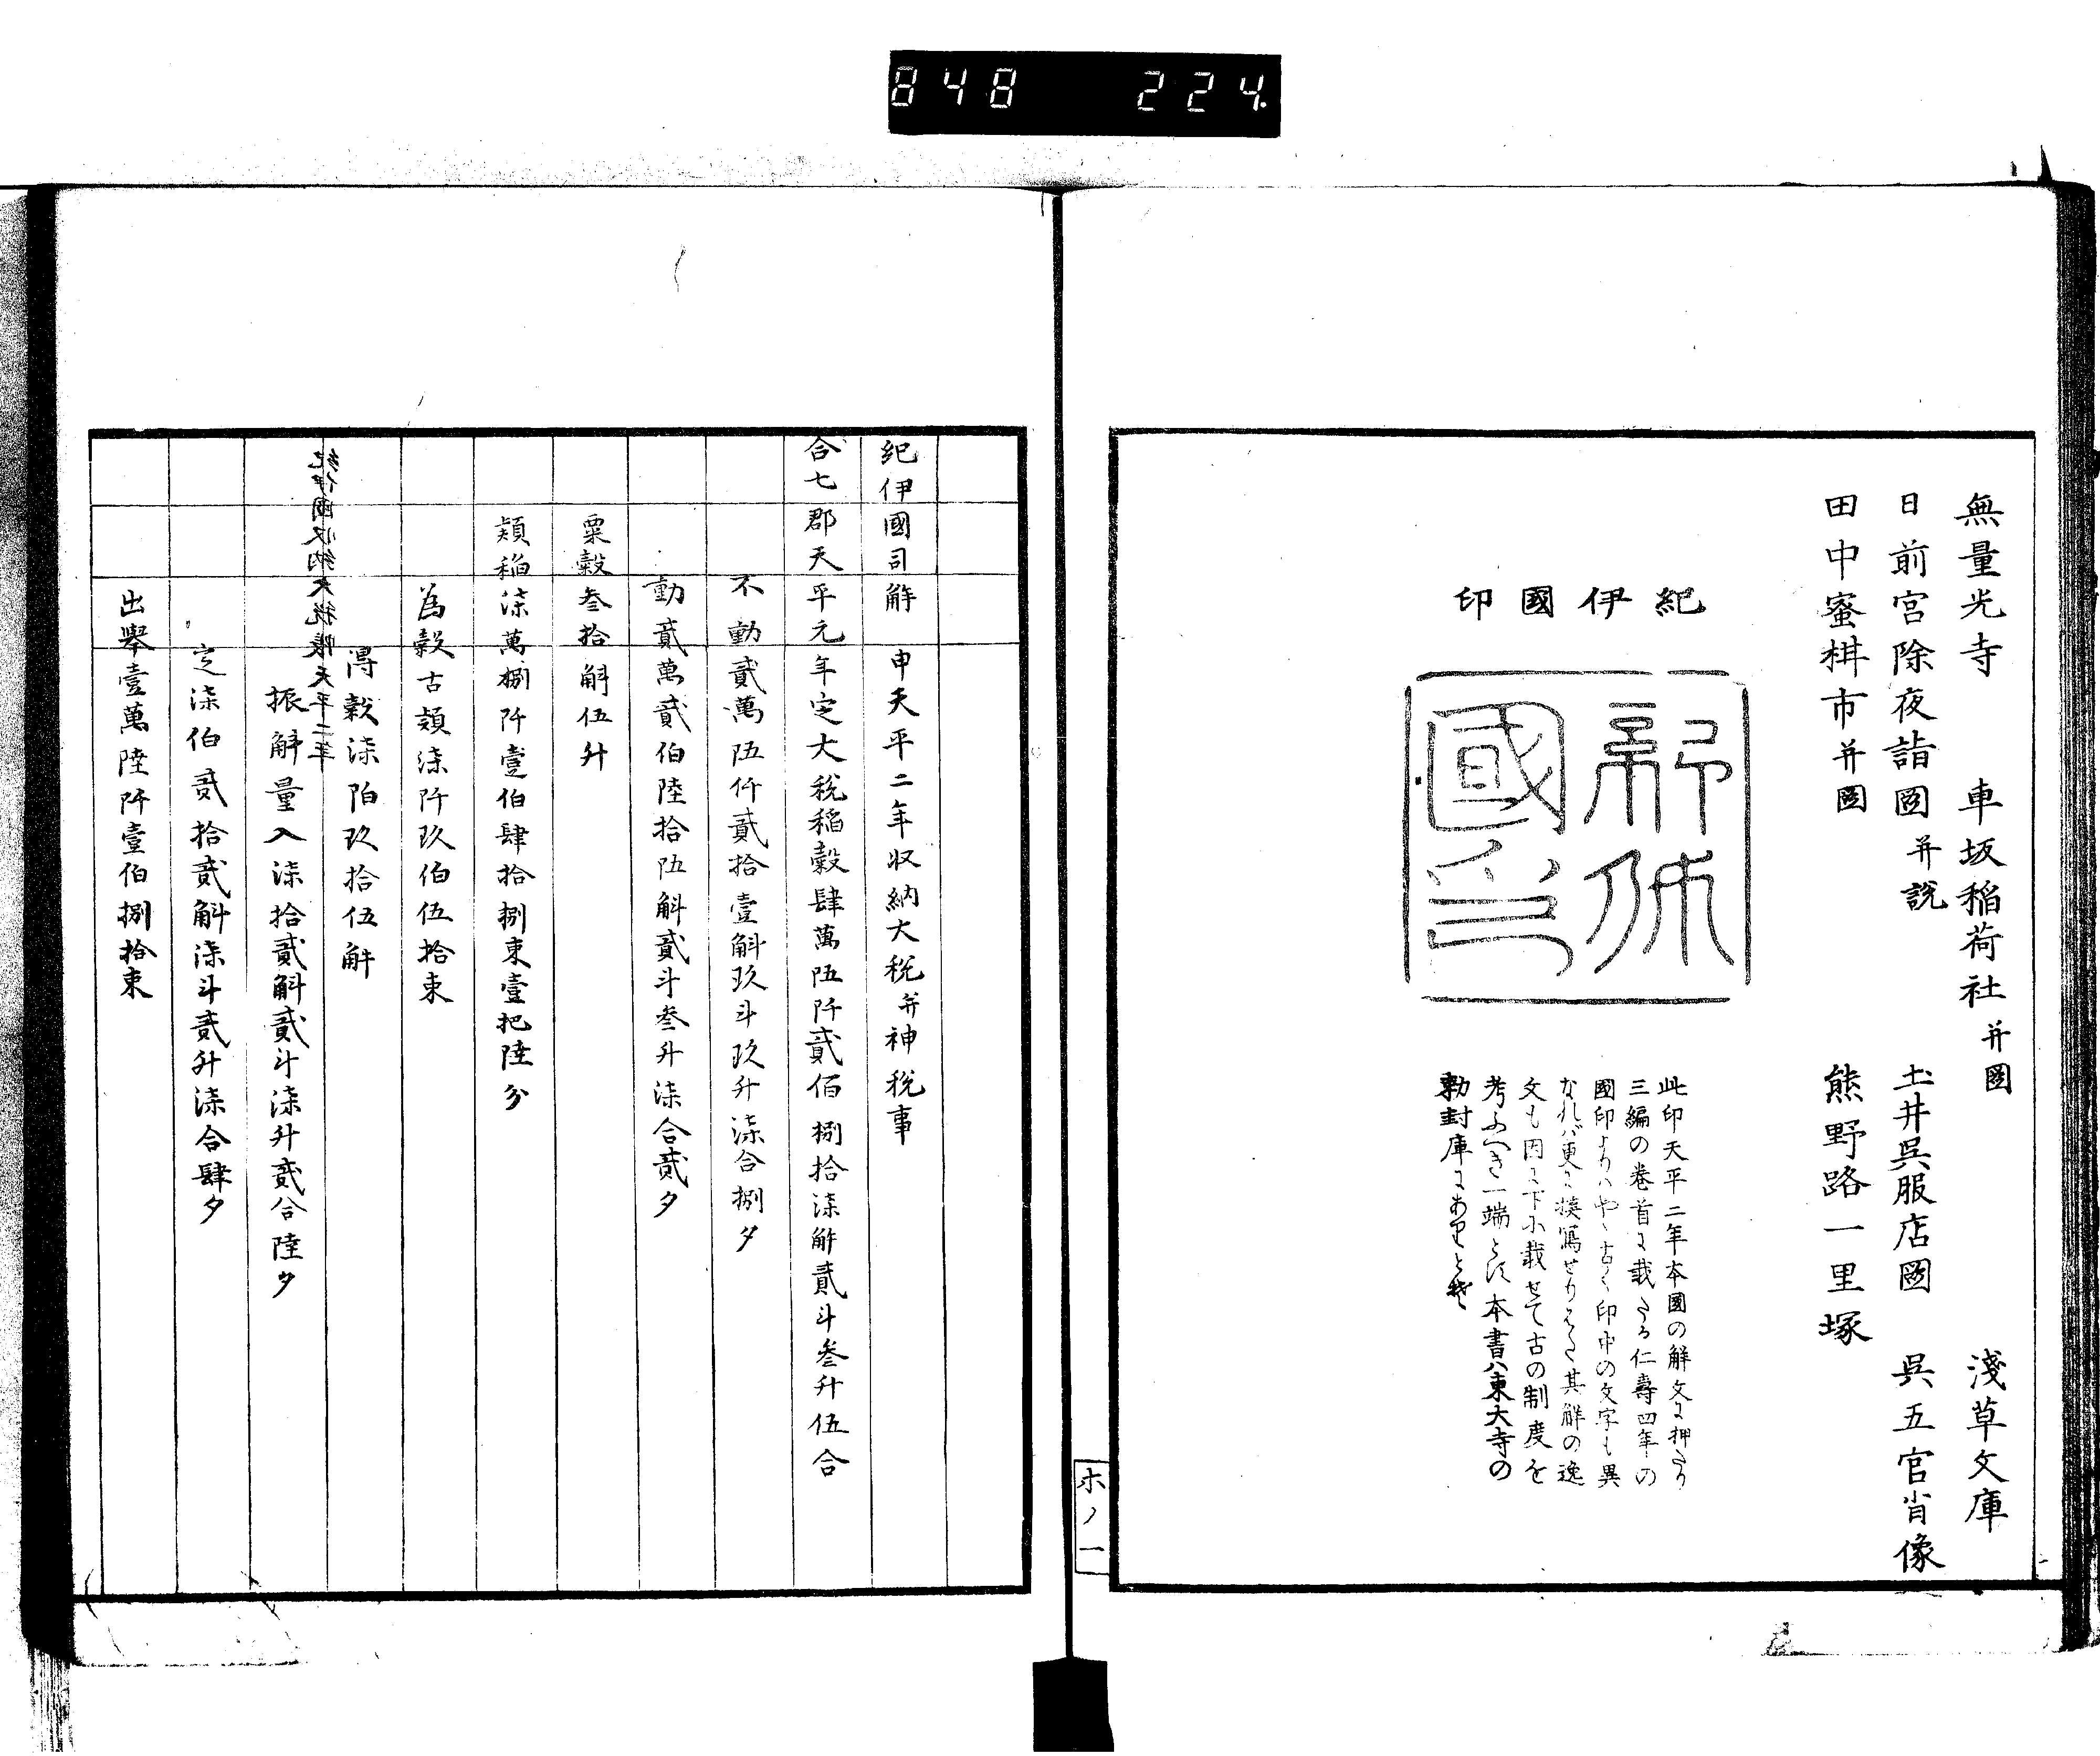 848 224
無量光寺 車坂稲荷社并圖 淺草文庫
日前宮除夜詣圖并説 土井呉服店圖 呉五官肖像
田中蜜柑市并圖 熊野路一里塚
紀伊國印
此印天平二年本國の解文に押たり
三編の巻首に載たる仁壽四年の
國印よりハやゝ古く印中の文字も異
なれバ更に摸寫せり其解の逸
文も因に下に載せて古の制度を
考ふへき一端とす本書ハ東大寺の
勅封庫にありと云
ホノ一
紀伊國司解 申天平二年収納大税并神税事
合七郡天平元年定大税稲穀肆萬伍阡貳佰捌拾柒斛貳斗叁升伍合
不動貳萬伍仟貳拾壹斛玖斗玖升柒合捌夕
動貳萬貳伯陸拾伍斛貳斗叁升柒合貳夕
粟穀叁拾斛伍升
穎稲柒萬捌阡壹伯肆拾捌束壹把陸分
為穀古穎柒阡玖伯伍拾束
得穀柒陌玖拾伍斛
紀伊國収納大税帳天平二年
振斛量入柒拾貳斛貳斗柒升貳合陸夕
定柒伯貳拾貳斛柒斗貳升柒合肆夕
出擧壹萬陸阡壹伯捌拾束